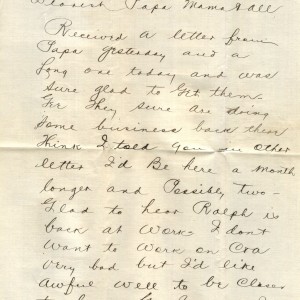 Dearest Papa Mama & all
Received a letter from
Papa yesterday and a
long one today and was
sure glad to get them.
Gee They sure are doing
some business back there
Think I told you in other
letter I'd Be here a month
longer and Possibly two-
Glad to hear Ralph is
back at work- I don't
want to work on
very bad but I'd like
awful well to be closer